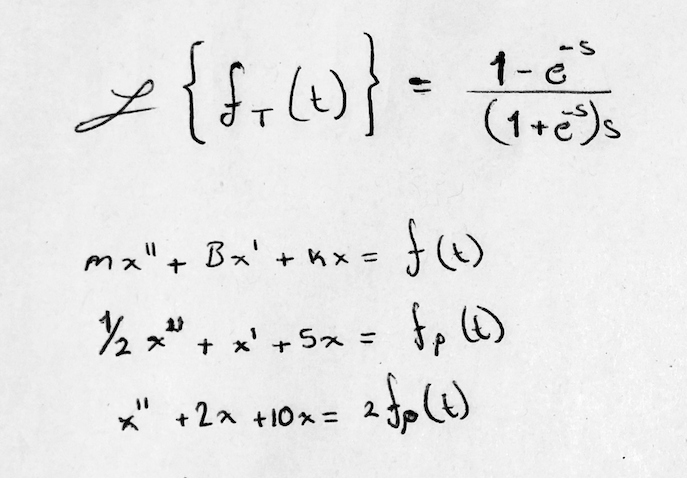 ℒ{f_T(t)} = (1-e^-s)/((1+e^-s)s)
mx" + Bx' + kx = f(t)
1/2 x" + x' + 5x = f_p(t)
x" + 2x + 10x = 2f_p(t)